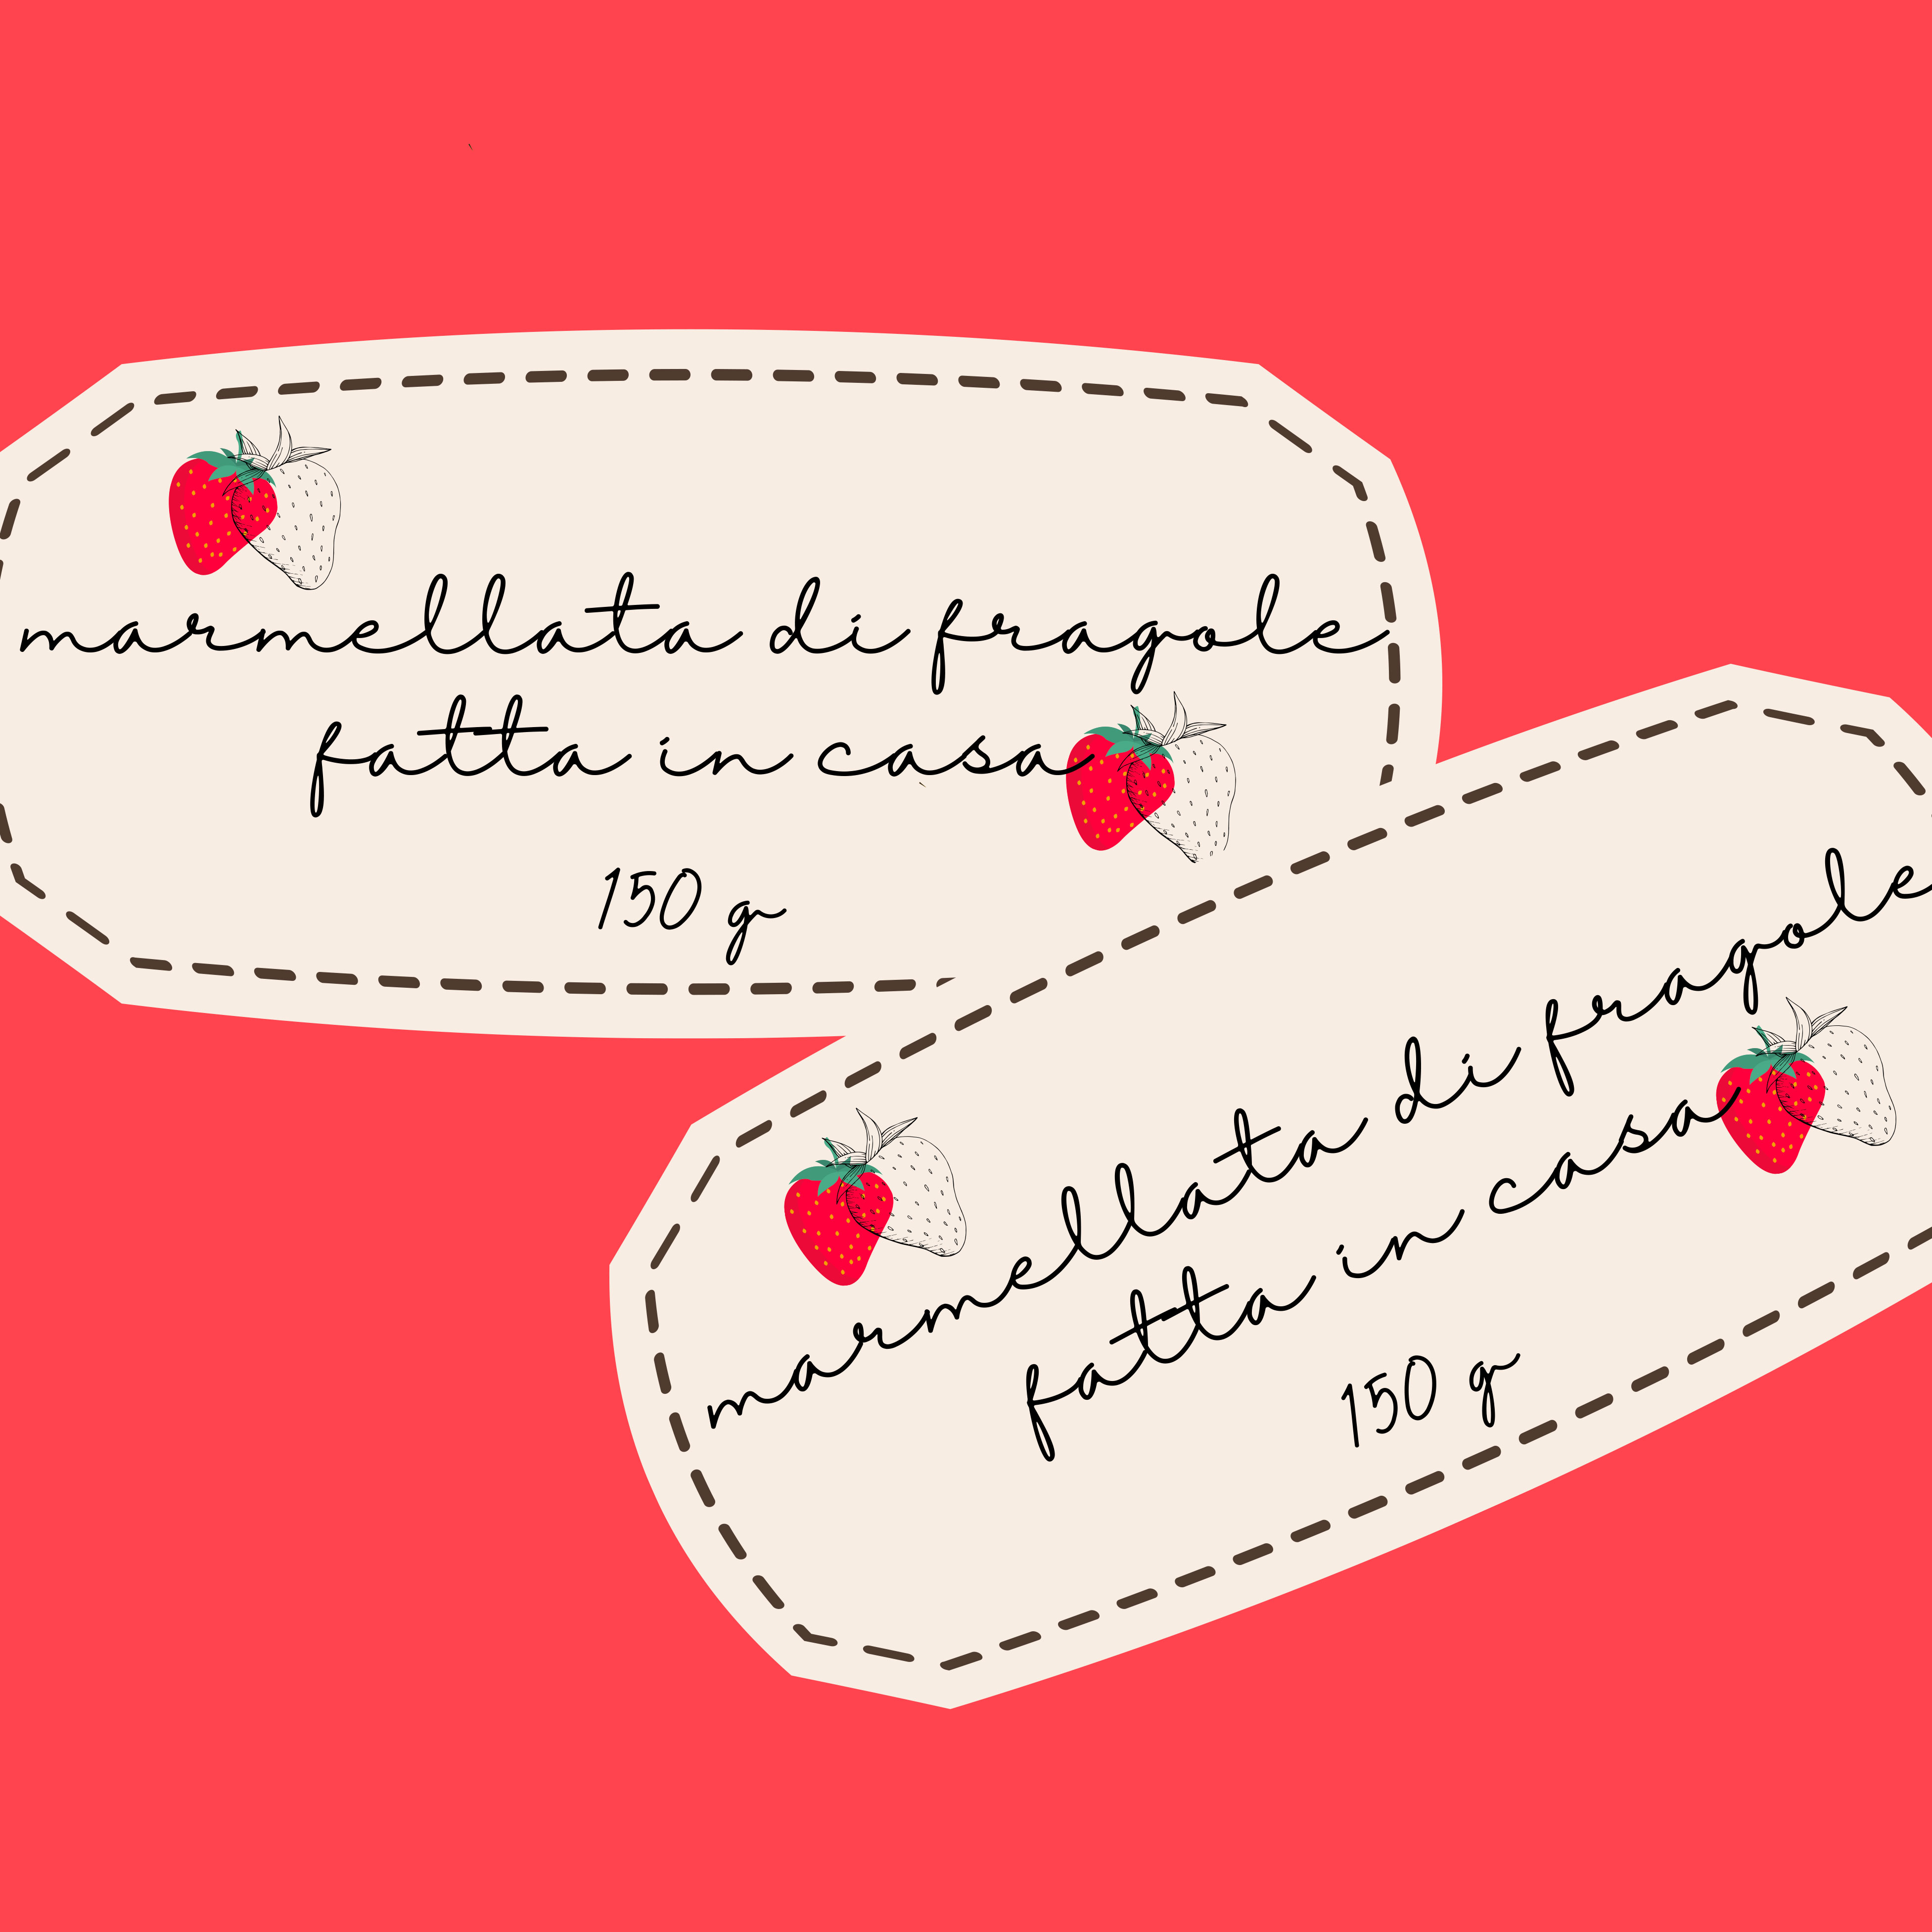 marmellata di fragole
fatta in casa
150 g
marmellata di fragole
fatta in casa
150 g